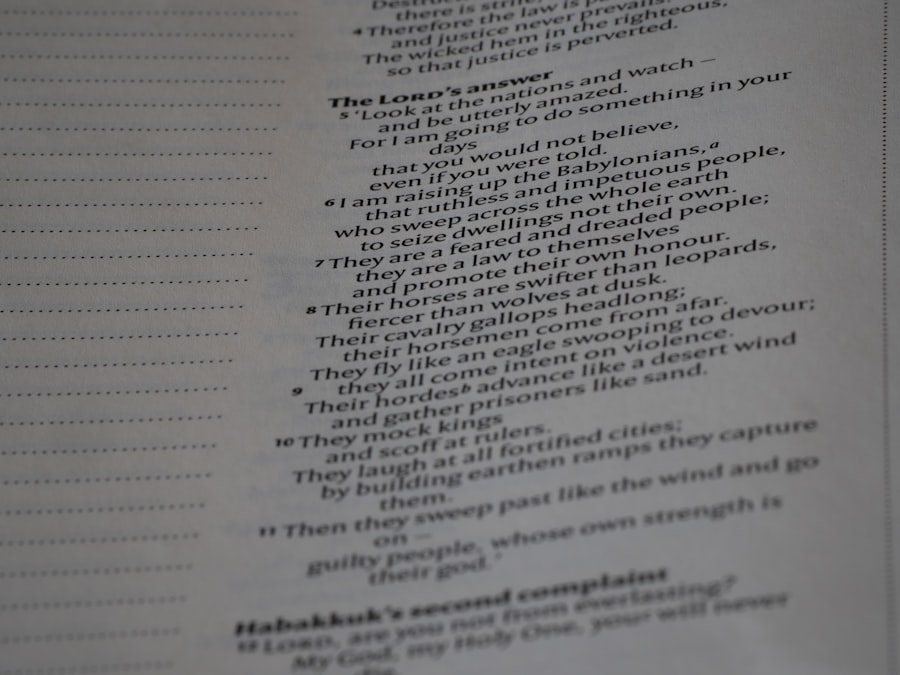 there is strife,
4 Therefore the law is
and justice never prevails.
The wicked hem in the righteous,
so that justice is perverted.
The LORD's answer
5 'Look at the nations and watch –
and be utterly amazed.
For I am going to do something in your
days
that you would not believe,
even if you were told.
6 I am raising up the Babylonians,a
that ruthless and impetuous people,
who sweep across the whole earth
to seize dwellings not their own.
7 They are a feared and dreaded people;
they are a law to themselves
and promote their own honour.
8 Their horses are swifter than leopards,
fiercer than wolves at dusk.
Their cavalry gallops headlong;
their horsemen come from afar.
They fly like an eagle swooping to devour;
9 they all come intent on violence.
Their hordesb advance like a desert wind
and gather prisoners like sand.
10 They mock kings
and scoff at rulers.
They laugh at all fortified cities;
by building earthen ramps they capture
them.
11 Then they sweep past like the wind and go
on –
guilty people, whose own strength is
their god.'
Habakkuk's second complaint
12 LORD, are you not from everlasting?
My God, my Holy One, your will never